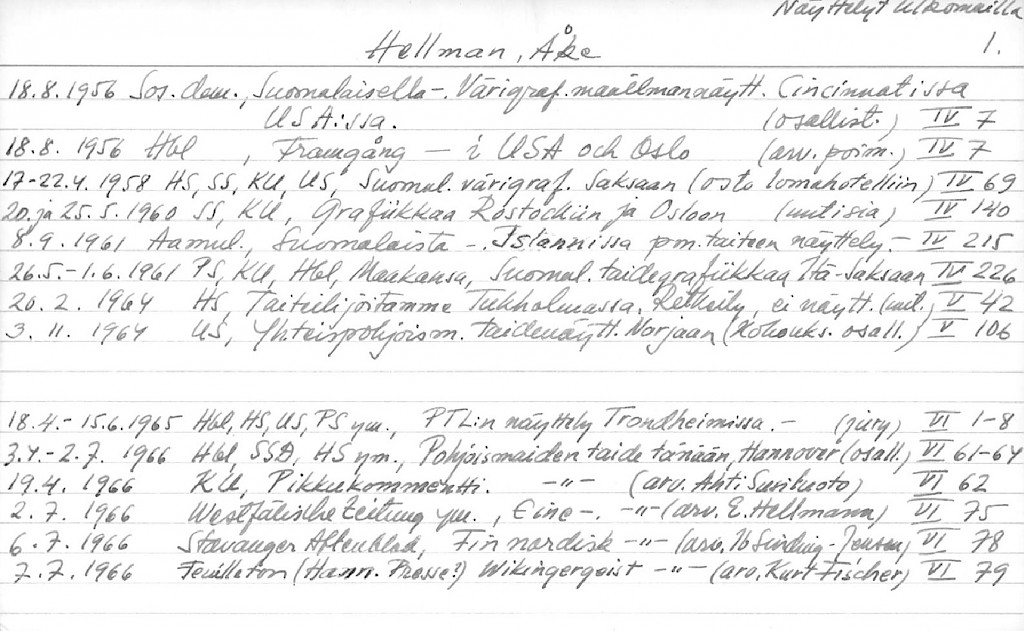 Näyttelyt Ulkomailla
1.
Hellman, Åke
18.8.1956 Sos.dem., Suomalaisella-. Värigraf. maailmannäytt. Cincinnatissa
USA:ssa. (osallist.) IV 7
18.8. 1956 Hbl , Framgång — i USA och Oslo (arv. poim.) IV 7
17-22.4. 1958 HS, SS, KU, US, Suomal. värigraf. Saksaan (osto lomahotelliin) IV 69
20. ja 25. 5. 1960 SS, KU, Grafiikkaa Rostockiin ja Osloon (uutisia) IV 140
8. 9. 1961 Aamul., Suomalaista -. Islannissa pm. taiteen näyttely.- IV 215
26.5.-1.6. 1961 PS, KU, Hbl, Maakansa, Suomal. taidegrafiikkaa Itä-Saksaan IV 226
20. 2. 1964 HS, Taiteilijoitamme Tukholmassa. Retkeily, ei näytt. V 42
3. 11. 1964 US, Yhteispohjoism. taidenäytt. Norjaan (Kokouks. osall.) V 106
18.4.- 15.6.1965 Hbl, HS, US, PS ym., PTL:n näyttely Trondheimissa. - (jury) VI 1-8
3.4.-2.7. 1966 Hbl, SSD, HS ym., Pohjoismaiden taide tänään, Hannover (osall.) VI 61-64
19.4. 1966 KU, Pikkukommentti. -"- (arv. Ahti Susiluoto) VI 62
2. 7. 1966 Westfälische Zeitung ym., Eine -. -"- (arv. E. Hellmann) VI 75
6. 7. 1966 Stavanger Aftenblad, Fin nordisk -"- (arv. Ib Sinding-Jensen) VI 78
7. 7. 1966 Feuilleton (Hann. Presse?) Wikingergeist -"- (arv. Kurt Fischer) VI 79